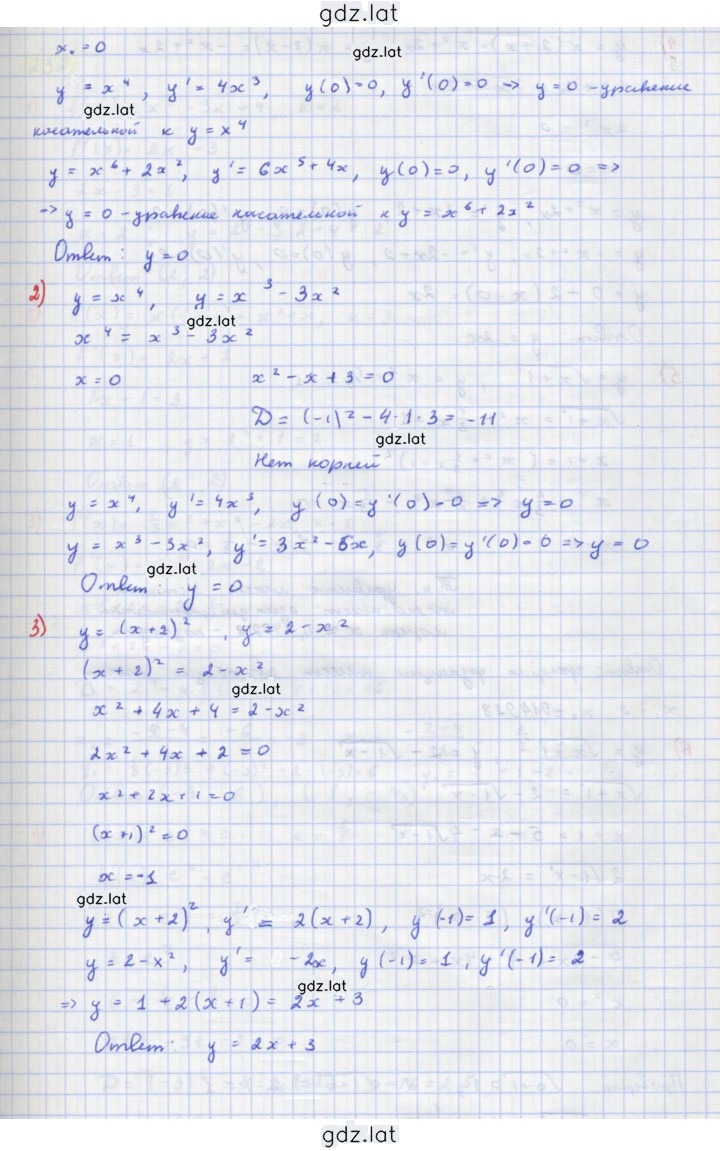 gdz.lat
x₀ = 0
gdz.lat
y = x⁴, y' = 4x³, y(0)=0, y'(0)=0 ⇒ y=0 - уравнение
gdz.lat
касательной к y = x⁴
y = x⁶ + 2x², y' = 6x⁵ + 4x, y(0)=0, y'(0)=0 ⇒
⇒ y = 0 - уравнение касательной к y = x⁶ + 2x²
Ответ: y = 0
2) y = x⁴, y = x³ - 3x²
gdz.lat
x⁴ = x³ - 3x²
x = 0 x² - x + 3 = 0
D = (-1)² - 4·1·3 = -11
gdz.lat
Нет корней
y = x⁴, y' = 4x³, y(0)=y'(0)=0 ⇒ y=0
y = x³ - 3x², y' = 3x² - 6x, y(0)=y'(0)=0 ⇒ y = 0
gdz.lat
Ответ: y = 0
3) y = (x+2)², y = 2 - x²
(x + 2)² = 2 - x²
gdz.lat
x² + 4x + 4 = 2 - x²
2x² + 4x + 2 = 0
x² + 2x + 1 = 0
(x+1)² = 0
x = -1
gdz.lat
y = (x+2)², y' = 2(x+2), y(-1) = 1, y'(-1) = 2
y = 2 - x², y' = -2x, y(-1) = 1, y'(-1) = 2
gdz.lat
⇒ y = 1 + 2(x+1) = 2x + 3
Ответ: y = 2x + 3
gdz.lat